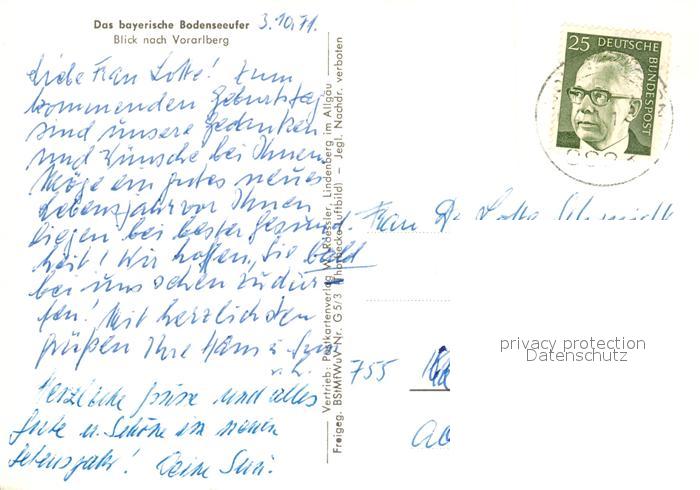 Das bayerische Bodenseeufer 3.10.71.
Blick nach Vorarlberg
Liebe Frau Lotte! Zum
kommenden Geburtstag
sind unsere Gedanken
und Wünsche bei Ihnen
Möge ein gutes neues
Lebensjahr vor Ihnen
liegen bei bester Gesund-
heit! Wir hoffen, Sie bald
bei uns sehen zu dür
fen! Mit herzlichsten
grüßen Ihre Hans u.
Herzliche Grüsse und alles
Gute u. Schöne im neuen
Lebensjahr!
Vertrieb: Postkartenverlag W. Roessler, Lindenberg im Allgäu
Freigeg. BStMfWuV-Nr. G 5/3 (Thorbecke-Luftbild) – Jegl. Nachdr. verboten
25 DEUTSCHE BUNDESPOST
Frau Dr. Lotte Schmidt
755
privacy protection
Datenschutz